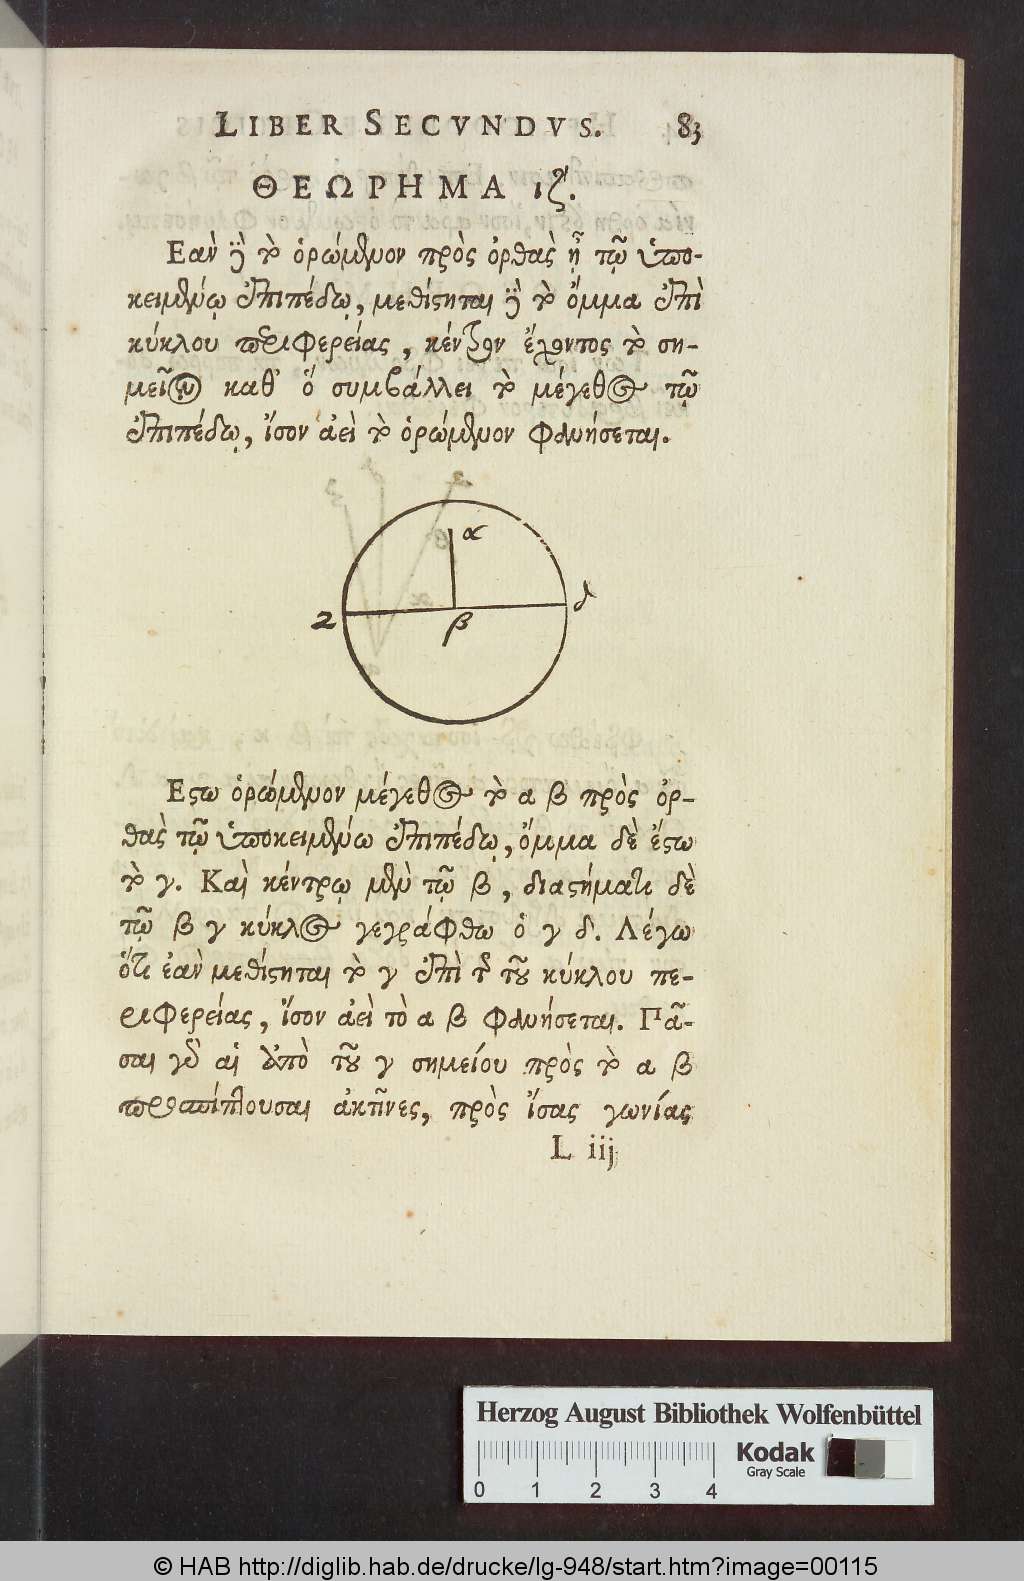 LIBER SECVNDVS. 83
ΘΕΩΡΗΜΑ ιζ'.
Εαν ȣ̈̀ τὸ ὁρώμενον πρὸς ὀρθὰς ᾖ τῷ ὑπο-
κειμένῳ ἐπιπέδῳ, μεθίστηται ȣ̈̀ τὸ ὄμμα ἐπὶ
κύκλου περιφερείας, κέντρον ἔχοντος τὸ ση-
μεῖον καθ' ὃ συμβάλλει τὸ μέγεθος τῷ
ἐπιπέδῳ, ἴσον ἀεὶ τὸ ὁρώμενον φανήσεται.
α
2 β δ
Εστω ὁρώμενον μέγεθος τὸ α β πρὸς ὀρ-
θὰς τῷ ὑποκειμένω ἐπιπέδῳ, ὄμμα δὲ ἔστω
τὸ γ. Καὶ κέντρῳ μὲν τῷ β, διαστήματι δὲ
τῷ β γ κύκλος γεγράφθω ὁ γ δ. Λέγω
ὅτι ἐὰν μεθίστηται τὸ γ ἐπὶ τῆς τοῦ κύκλου πε-
ριφερείας, ἴσον ἀεὶ τὸ α β φανήσεται. Πᾶ-
σαι γὰρ αἱ ἀπὸ τοῦ γ σημείου πρὸς τὸ α β
προσπίπτουσαι ἀκτῖνες, πρὸς ἴσας γωνίας
L iij
Herzog August Bibliothek Wolfenbüttel
Kodak
Gray Scale
0 1 2 3 4
© HAB http://diglib.hab.de/drucke/lg-948/start.htm?image=00115